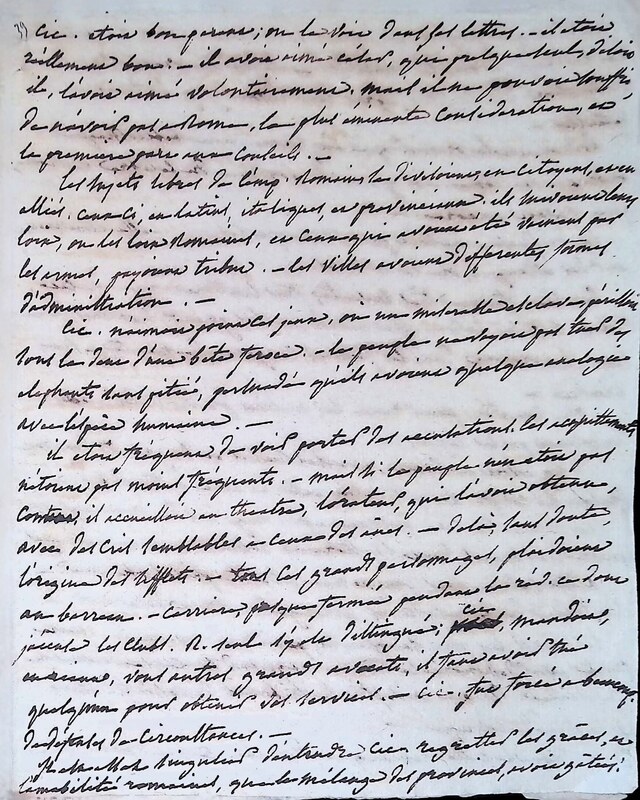 39 Cic. etoit bon parent; on le voit dans ses lettres. – il etoit
réellement bon. – il avoit aimé César, qui presque seul, de loin
il, l'avoit aimé volontairement, mais il ne pouvoit souffrir,
de n'avoir pas a Rome, la plus éminente considération, et
la premiere part aux Conseils. –
Les sujets libres de l'emp. Romain, se divisoient en Citoyens, et en
alliés. Ceux ci, en latins, italiques, et provinciaux. ils suivoient leurs
loix, ou les loix Romaines, et Ceux qui avoient été vaincus par
les armes, payoient tribut. – les Villes avoient differentes formes
d'administration. –
Cic. n'aimoit point Ces jeux, où un miserable esclave, périssoit
sous la dent d'une bête feroce. – le peuple ne voyoit pas tuer des
elephants sans pitié, persuadé qu'ils avoient quelque analogie
avec l'espèce humaine. –
il etoit fréquent de voir porter des accusations. les acquittements
n'étoient pas moins fréquents. – mais si le peuple n'en etoit pas
content, il accueilloit au theatre, l'orateur, qui l'avoit obtenu,
avec des cris semblables a ceux des ânes. – de là, sans doute,
l'origine des sifflets. – tous Ces grands personnages, plaidoient
au barreau. – Carriere, presque fermée pendant la rév.
les Clubs. R. seul
vous autres, grands avocats, il faut avoir tué
quelqu'un pour obtenir vos services. – Cic. fut forcé a beaucoup
de Circonstances. –
singulier d'entendre Cic. regretter les grâces, et
l'amabilité romaines, que le mélange des provinces, avoit gâtées.